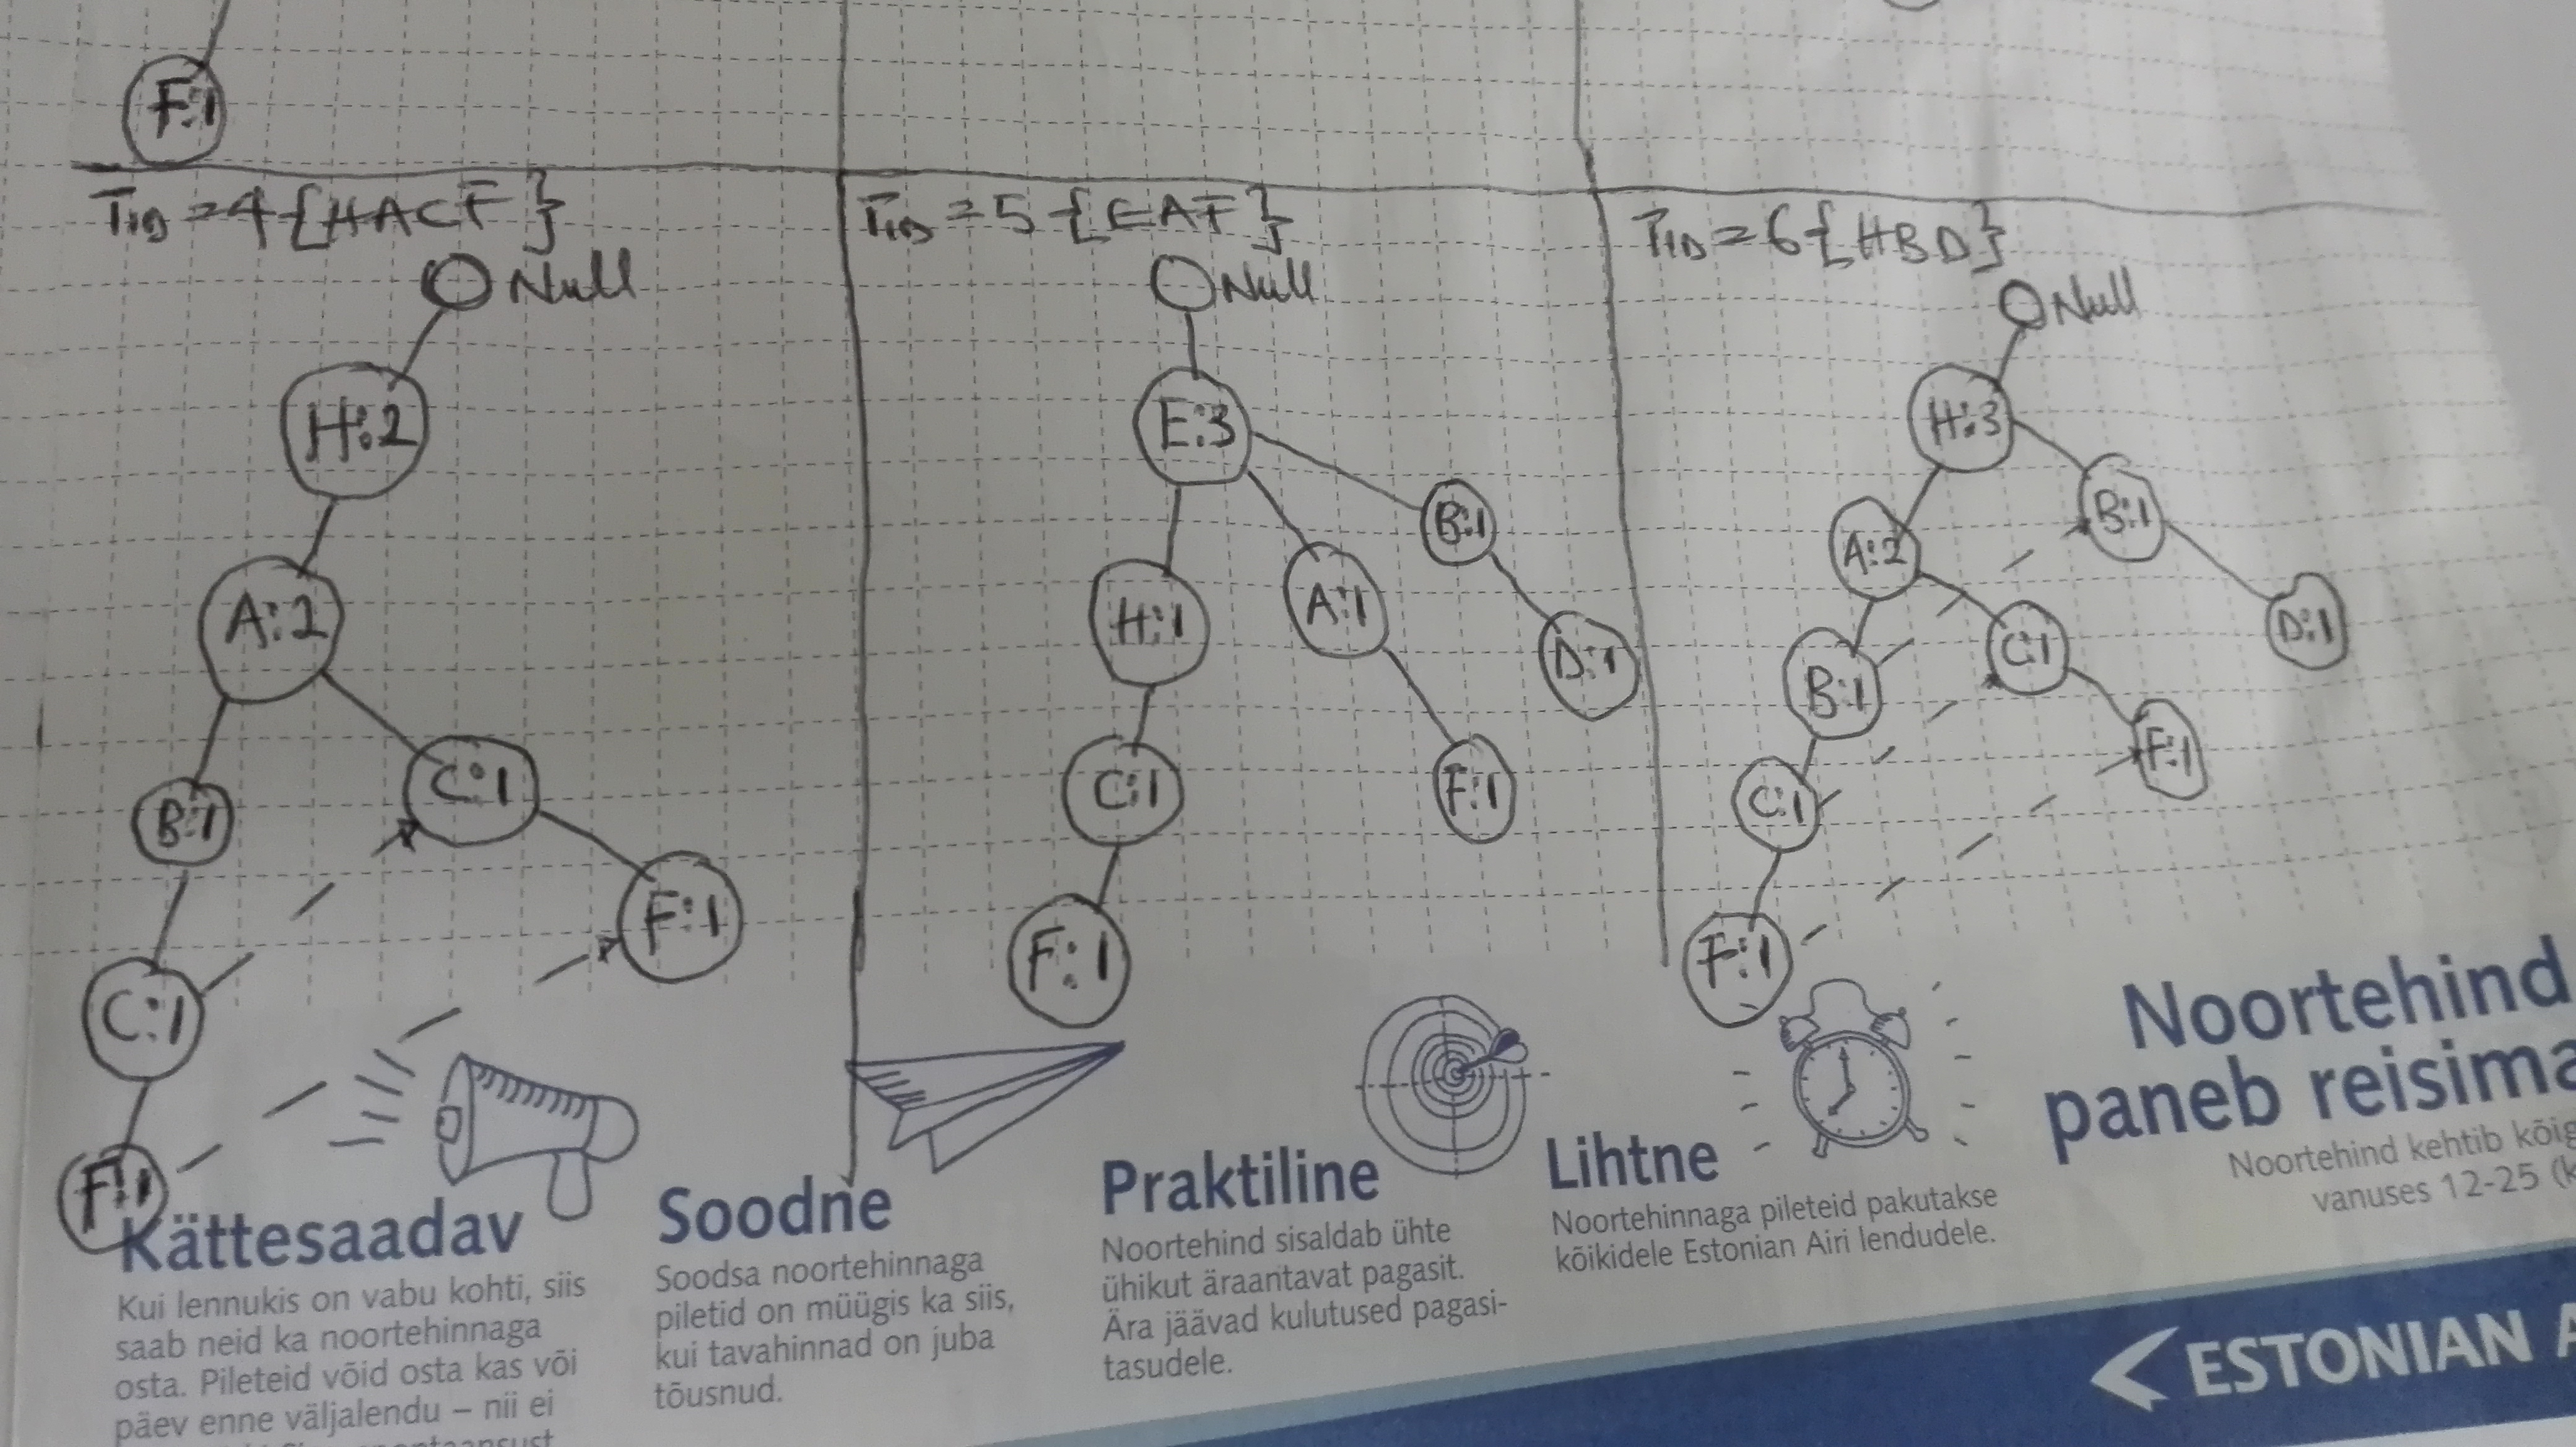 F:1
TID=4{HACF}
Null
H:2
A:2
B:1
C:1
F:1
C:1
F:1
TID=5{EAF}
Null
E:3
B:1
H:1
A:1
D:1
C:1
F:1
F:1
TID=6{HBD}
Null
H:3
B:1
A:2
D:1
C:1
B:1
F:1
C:1
F:1
Kättesaadav
Kui lennukis on vabu kohti, siis
saab neid ka noortehinnaga
osta. Pileteid võid osta kas või
päev enne väljalendu – nii ei
Soodne
Soodsa noortehinnaga
piletid on müügis ka siis,
kui tavahinnad on juba
tõusnud.
Praktiline
Noortehind sisaldab ühte
ühikut äraantavat pagasit.
Ära jäävad kulutused pagasi-
tasudele.
Lihtne
Noortehinnaga pileteid pakutakse
kõikidele Estonian Airi lendudele.
Noortehind
paneb reisima
Noortehind kehtib kõig
vanuses 12-25 (k
ESTONIAN A